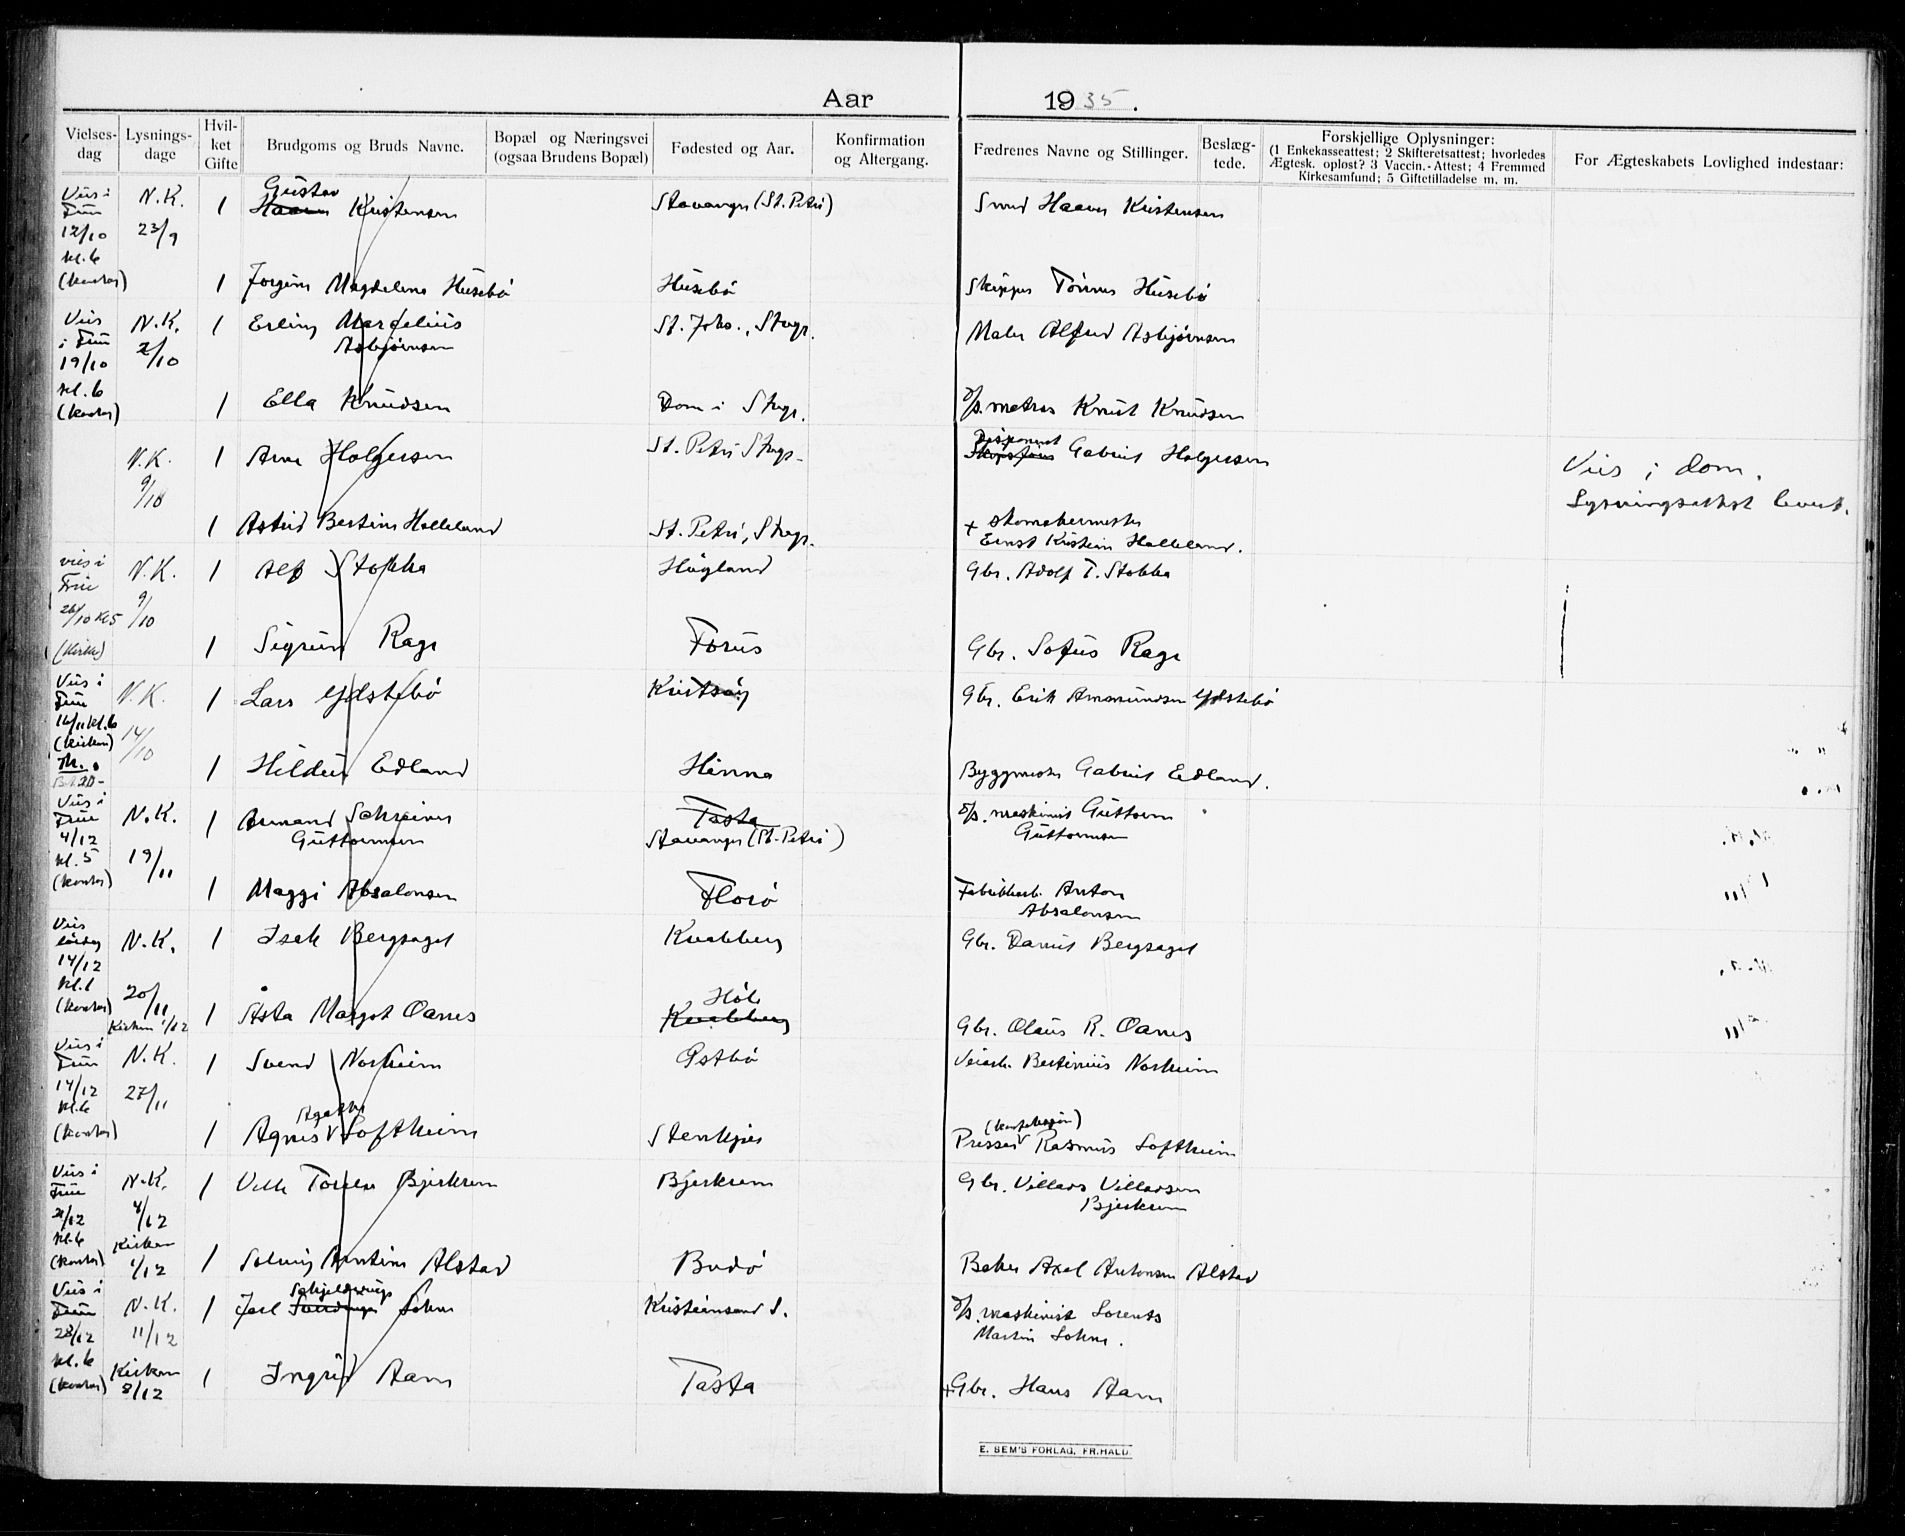 Aar 1935.
Vielses-dag
Lysnings-dage
Hvil-ket Gifte
Brudgoms og Bruds Navne.
Bopæl og Næringsvei (ogsaa Brudens Bopæl)
Fødested og Aar.
Konfirmation og Altergang.
Fædrenes Navne og Stillinger.
Beslæg-tede.
Forskjellige Oplysninger:
(1 Enkekasseattest; 2 Skifteretsattest; hvorledes
Ægtesk. opløst? 3 Vaccin.-Attest; 4 Fremmed
Kirkesamfund; 5 Giftetilladelse m. m.
For Ægteskabets Lovlighed indestaar:
Viis i Frue 12/10 kl. 6 (kontor) N.K. 23/9
1 Gustav Kristensen Stavanger (St. Petri) Smed Haaver Kristensen
1 Jorgine Magdalena Husebø Husebø Skipper Tønnes Husebø
Viis i Frue 19/10 kl. 6 (kontor) N.K. 2/10
1 Erling Marselius St. Johs., Stvgr. Maler Alfred Asbjørnsen
Asbjørnsen
1 Ella Knudsen Dom i Stvgr. d/s. matros Knut Knudsen
N.K. 9/10
1 Arne Holgersen St. Petri Stvgr. Disponent Gabriel Holgersen
Viis i dom.
Lysningsattest levert.
1 Astrid Bertine Helleland St. Petri, Stvgr. + skomakermester
Ernst Kristian Helleland.
viis i Frue 26/10 kl 5 (kirke) N.K. 9/10
1 Alf Stokka Høgland Gbr. Adolf T. Stokka
1 Sigrun Rage Forus Gbr. Sofus Rage
Viis i Frue 16/11 kl. 6 (kirken) N.K. 14/10
1 Lars Ydstebø Kvitsøy Gbr. Erik Amundsen Ydstebø
1 Hildur Edland Hinna Byggmester Gabriel Edland.
Viis i Frue 4/12 kl. 5 (kontor) N.K. 19/11
1 Armand Schreiner Tasta d/s. maskinist Guttorm
Guttormsen Stavanger (St. Petri) Guttormsen
1 Maggi Absalonsen Florø Fabrikkarb. Anton
Absalonsen
Viis lørdag 14/12 kl. 1 (kontor) N.K. 20/11 Kirken 1/12
1 Isak Bergsagel Kvabberg Gbr. Daniel Bergsagel
1 Åsta Margot Oanes Høle Kvabberg Gbr. Olaus R. Oanes
Viis i Frue 14/12 kl. 6 (kontor) N.K. 27/11
1 Svend Norheim Østbø Veiarb. Bertinius Norheim
1 Agnes Agathe Loftheim Stenkjer Presser Rasmus Loftheim
Viis i Frue 21/12 kl. 6 (kontor) N.K. 4/12 Kirken 1/12
1 Bjerkrem Bjerkrem Gbr. Villads Villadsen
Bjerkrem
1 Solveig Arntine Alstad Bodø Baker Axel Antonsen Alstad
Viis i Frue 28/12 kl. 6 (kontor) N.K. 11/12 Kirken 8/12
1 Jarl Schjelderups Lohne Kristiansand S. d/s. maskinist Lorents
Martin Lohne.
1 Ingrid Aam Tasta + Gbr. Hans Aam
E. SEM'S FORLAG, FR.HALD.